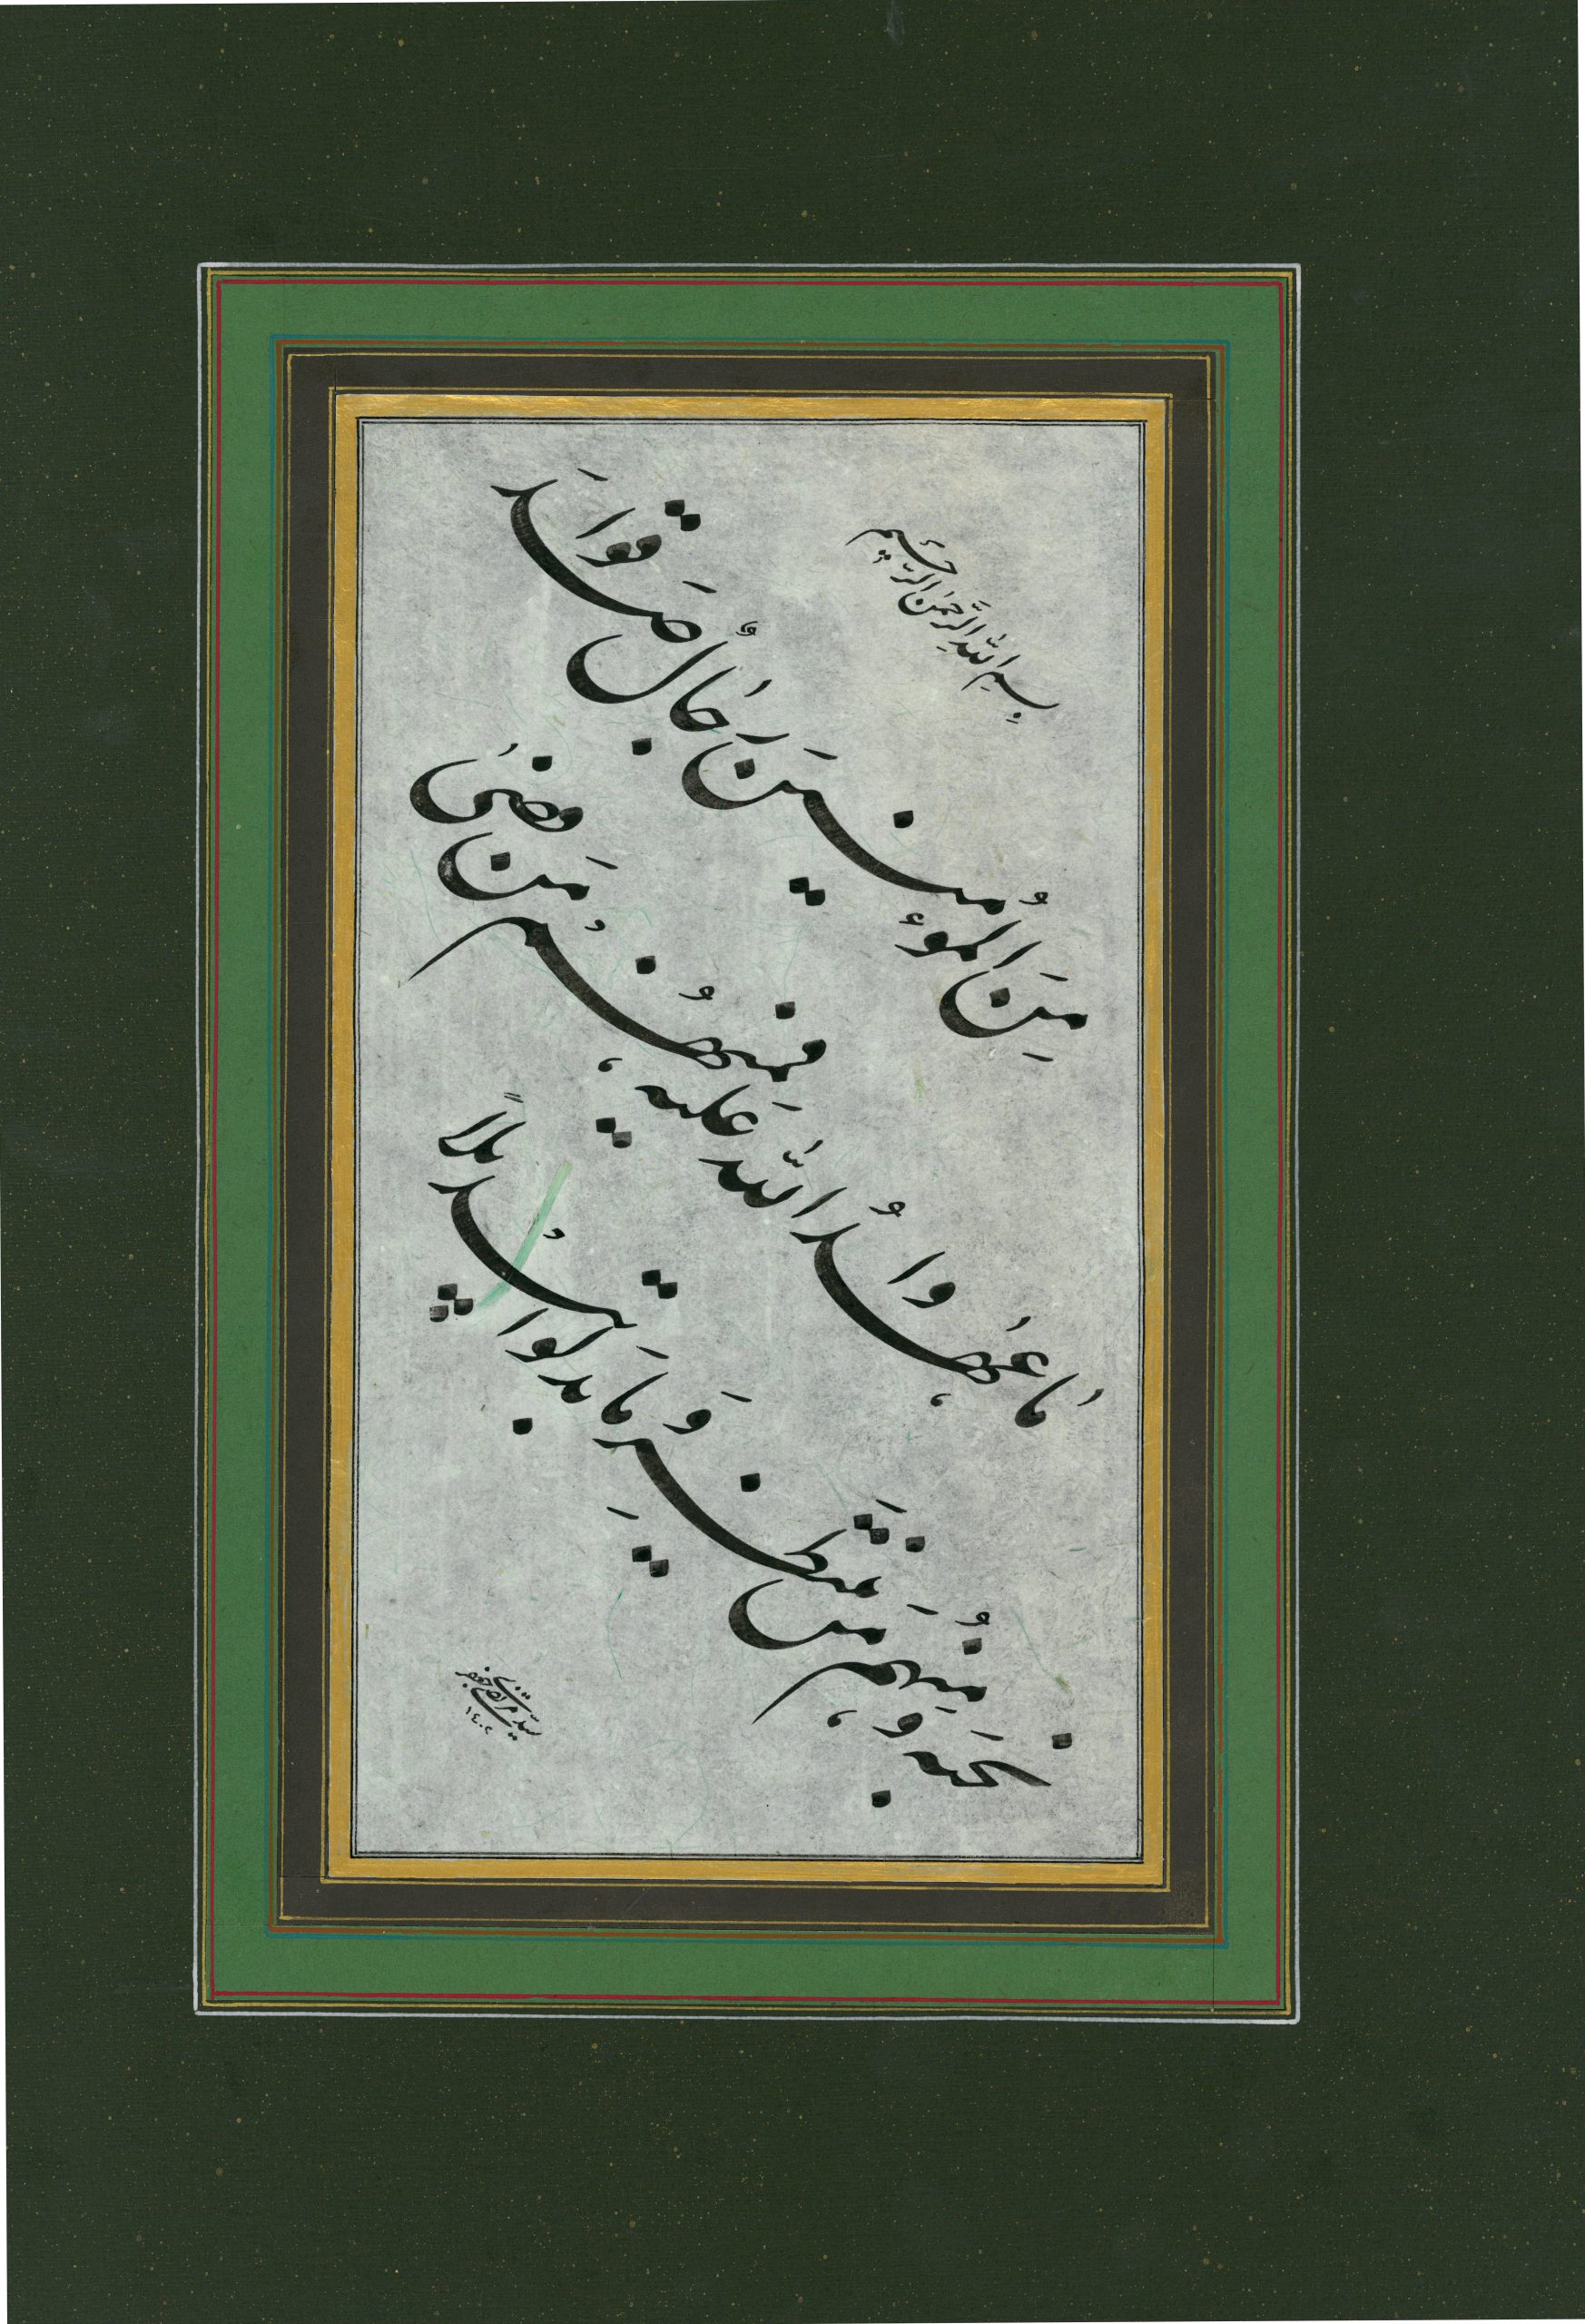 بسم الله الرحمن الرحیم
مِنَ المُوءمنینَ رجالٌ صَدَقوا
ما عٰهَدُوا الله علیه فَمِنهُم مَن قضیٰ
نحبَه و مِنهُم مَن یَنتَظِر وَ ما بدلوا تَبدیلاً
سید مرتضی جعفری
۱٤۰۲